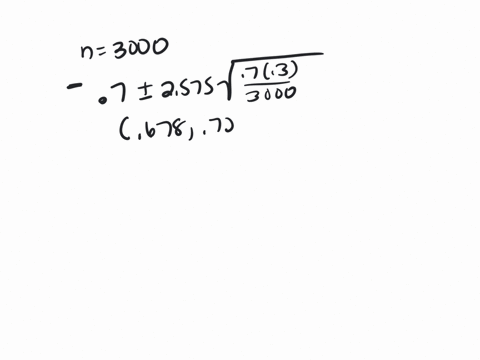 n = 3000
- .7 ± 2.575 √(.7(.3)/3000)
(.678, .72